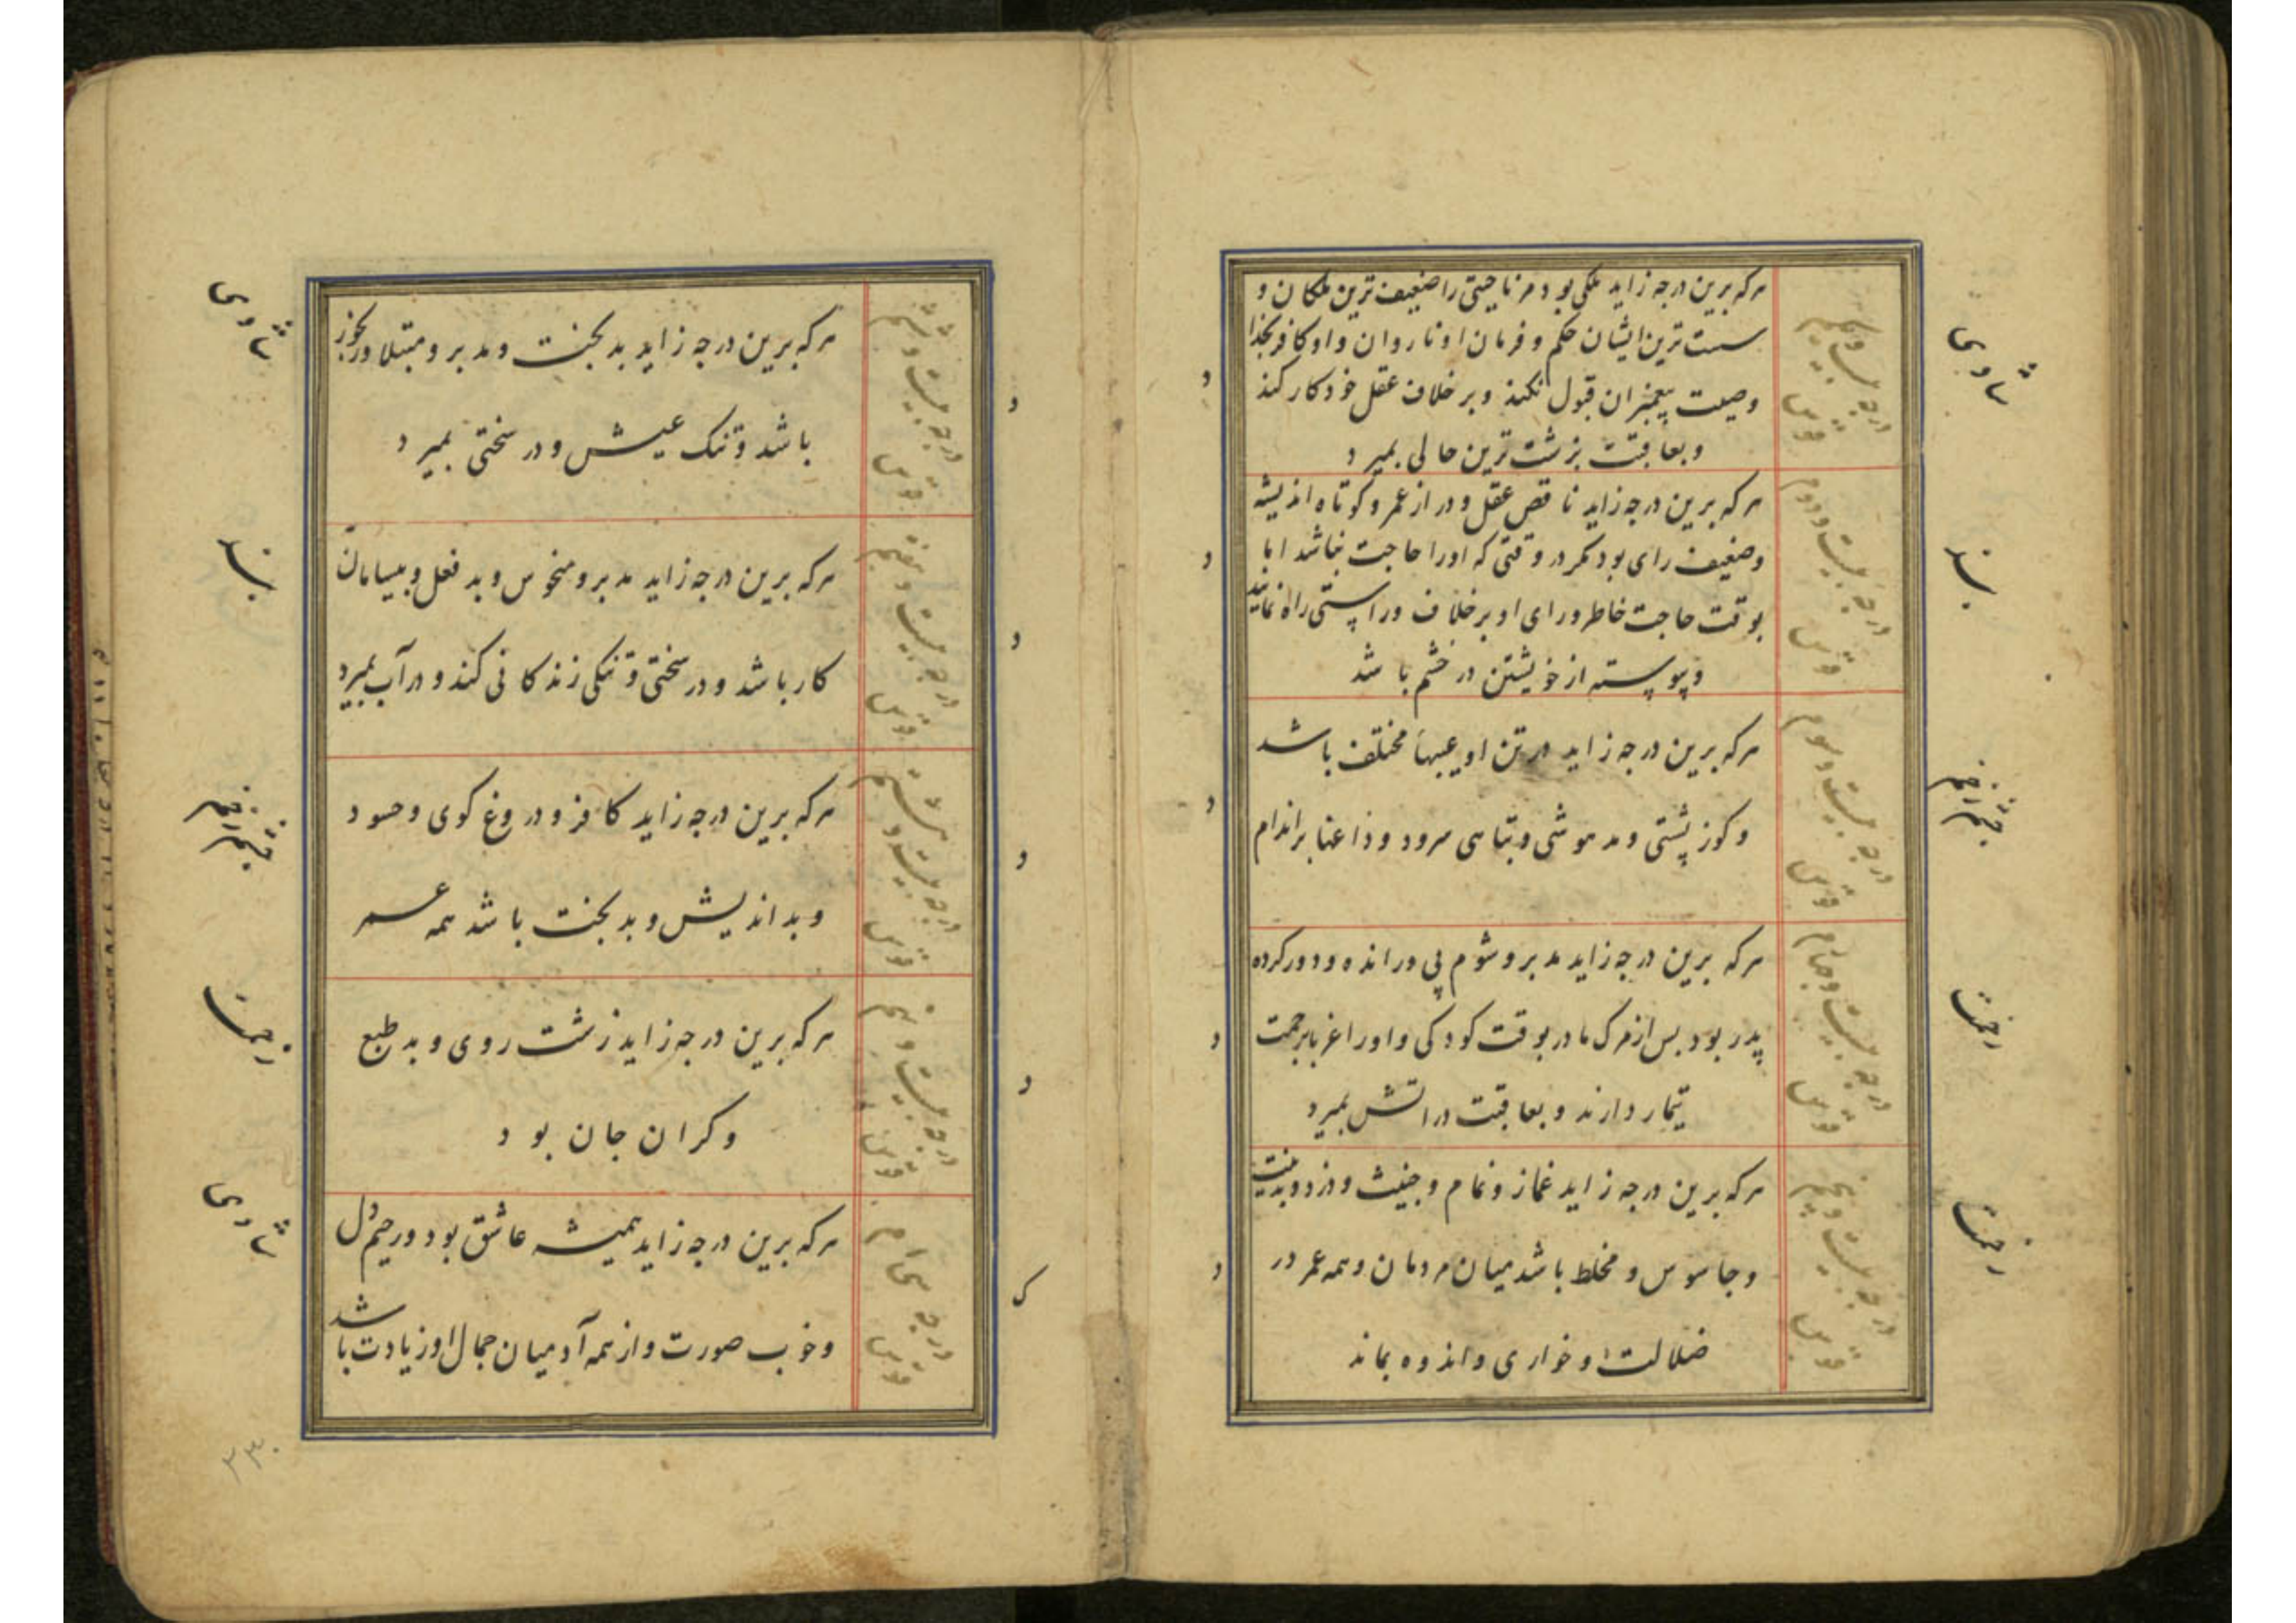 درجه بیست و یکم
قوس
هرکه برین درجه زاید ملکی بود مر ناحیتی را ضعیف ترین ملکان و
سست ترین ایشان حکم و فرمان او نا روان و او کافر بخدا
وصیت پیغمبران قبول نکند و بر خلاف عقل خود کار کند
و بعاقبت بزشت ترین حالی بمیرد
درجه بیست و دوم
قوس
هرکه برین درجه زاید ناقص عقل و دراز عمر و کوتاه اندیشه
و ضعیف رای بود مکر در وقتی که اورا حاجت نباشد اما
بوقت حاجت خاطر و رای او بر خلاف و راستی راه نماید
و پیوسته از خویشتن در خشم باشد
درجه بیست و سوم
قوس
هرکه برین درجه زاید در تن او عیبها مختلف باشد
و کوز پشتی و مدهوشی و تباهی سرود و داعنا بر اندام
درجه بیست و چهارم
قوس
هرکه برین درجه زاید مدبر و شوم پی و رانده و دور کرده
پدر بود بس از مرک مادر بوقت کودکی و اورا غربا برحمت
تیمار دارند و بعاقبت در اتش بمیرد
درجه بیست و پنجم
قوس
هرکه برین درجه زاید غماز و نمام و خبیث و دزد و بدنیت
و جاسوس و مخلط باشد میان مردمان و همه عمر در
ضلالت و خواری و اندوه بماند
درجه بیست و ششم
قوس
هرکه برین درجه زاید بدبخت و مدبر و مبتلا و رنجور
باشد و تنک عیش و در سختی بمیرد
درجه بیست و هفتم
قوس
هرکه برین درجه زاید مدبر و منحوس و بد فعل و بیسامان
کار باشد و در سختی و تنکی زندکانی کند و در آب بمیرد
درجه بیست و هشتم
قوس
هرکه برین درجه زاید کافر و دروغ کوی و حسود
و بد اندیش و بدبخت باشد همه عمر
درجه بیست و نهم
قوس
هرکه برین درجه زاید زشت روی و بد طبع
و کران جان بود
درجه سی ام
قوس
هرکه برین درجه زاید همیشه عاشق بود و رحیم دل
و خوب صورت و از همه آدمیان جمال او زیادت باشد
۲۳۰